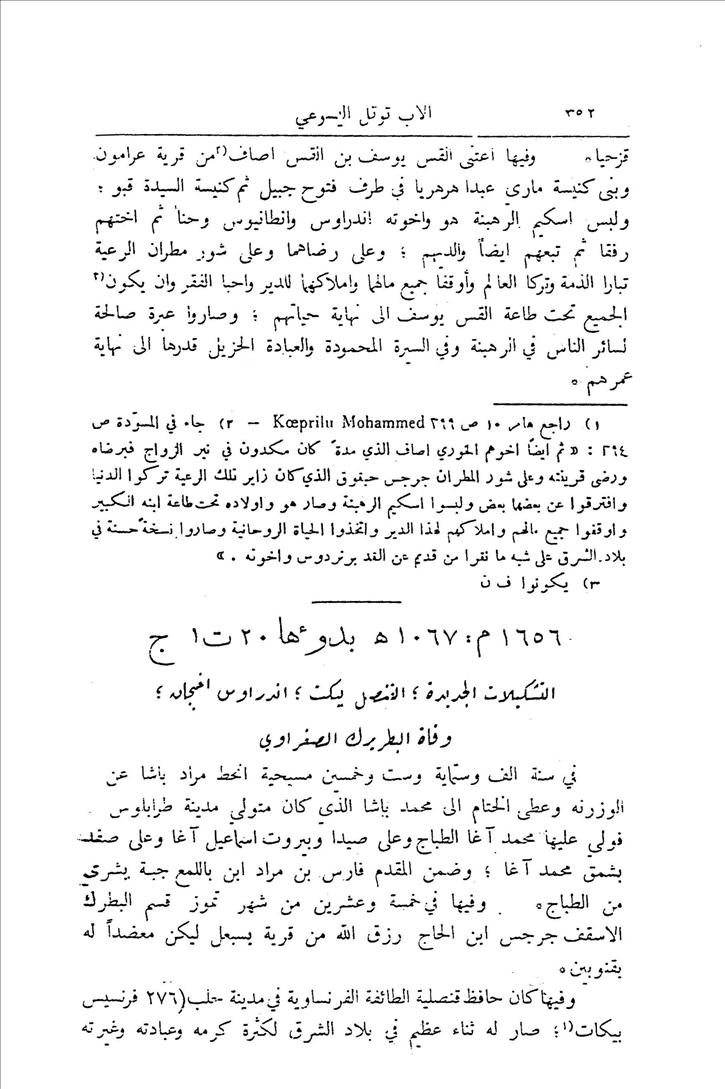 ٣٥٢ الاب توتل اليسوعي
قزحيا ٠ وفيها اعتنى القس يوسف بن القس اصاف(٢ من قرية عرامون
وبنى كنيسة ماري عبدا هرهريا في طرف فتوح جبيل ثم كنيسة السيدة قبو ؛
ولبس اسكيم الرهبنة هو واخوته اندراوس وانطانيوس وحنا ثم اختهم
رفقا ثم تبعهم ايضاً والديهم ؛ وعلى رضاهما وعلى شور مطران الرعية
تبارا الذمة وتركا العالم وأوقفا جميع مالهما واملاكهما للدير واحبا الفقر وان يكون(٣
الجميع تحت طاعة القس يوسف الى نهاية حياتهم ؛ وصاروا عبرة صالحة
لسائر الناس في الرهبنة وفي السيرة المحمودة والعبادة الجزيل قدرها الى نهاية
عمرهم ٠
١) راجع هامر ١٠ ص ٢٩٩ Kœprilu Mohammed — ٢) جاء في المسوّدة ص
٢٩٤ : « ثم ايضاً اخوهم الخوري اصاف الذي مدةً كان مكدون في نير الزواج فبرضاه
ورضى قرينته وعلى شور المطران جرجس حبقوق الذي كان زاير تلك الرعية تركوا الدنيا
وافترقوا عن بعضها بعض ولبسوا اسكيم الرهبنة وصار هو واولاده تحت طاعة ابنه الكبير
واوقفوا جميع مالهم واملاكهم لهذا الدير واتخذوا الحياة الروحانية وصاروا نسخةً حسنة في
بلاد الشرق على شبه ما نقرا من قديم عن القد برنردوس واخوته . »
٣) يكونوا ف ن
١٦٥٦ م : ١٠٦٧ ه بدوءها ٢٠ ت١ ج
التشكيلات الجديدة ؛ القنصل بيكت ؛ اندراوس اخيجان ؛
وفاة البطريرك الصفراوي
في سنة الف وستماية وست وخمسين مسيحية انحط مراد باشا عن
الوزرنه وعطى الختام الى محمد باشا الذي كان متولي مدينة طرابلوس
فولي عليها محمد آغا الطباج وعلى صيدا وبيروت اسماعيل آغا وعلى صفد
بشمق محمد آغا ؛ وضمن المقدم فارس بن مراد ابن باللمع جبة بشري
من الطباج ٠ وفيها في خمسة وعشرين من شهر تموز قسم البطرك
الاسقف جرجس ابن الحاج رزق الله من قرية بسبعل ليكن معضداً له
بقنوبين ٠
وفيها كان حافظ قنصلية الطائفة الفرنساوية في مدينة حلب (٢٧٦ فرنسيس
بيكات(١؛ صار له ثناء عظيم في بلاد الشرق لكثرة كرمه وعبادته وغيرته